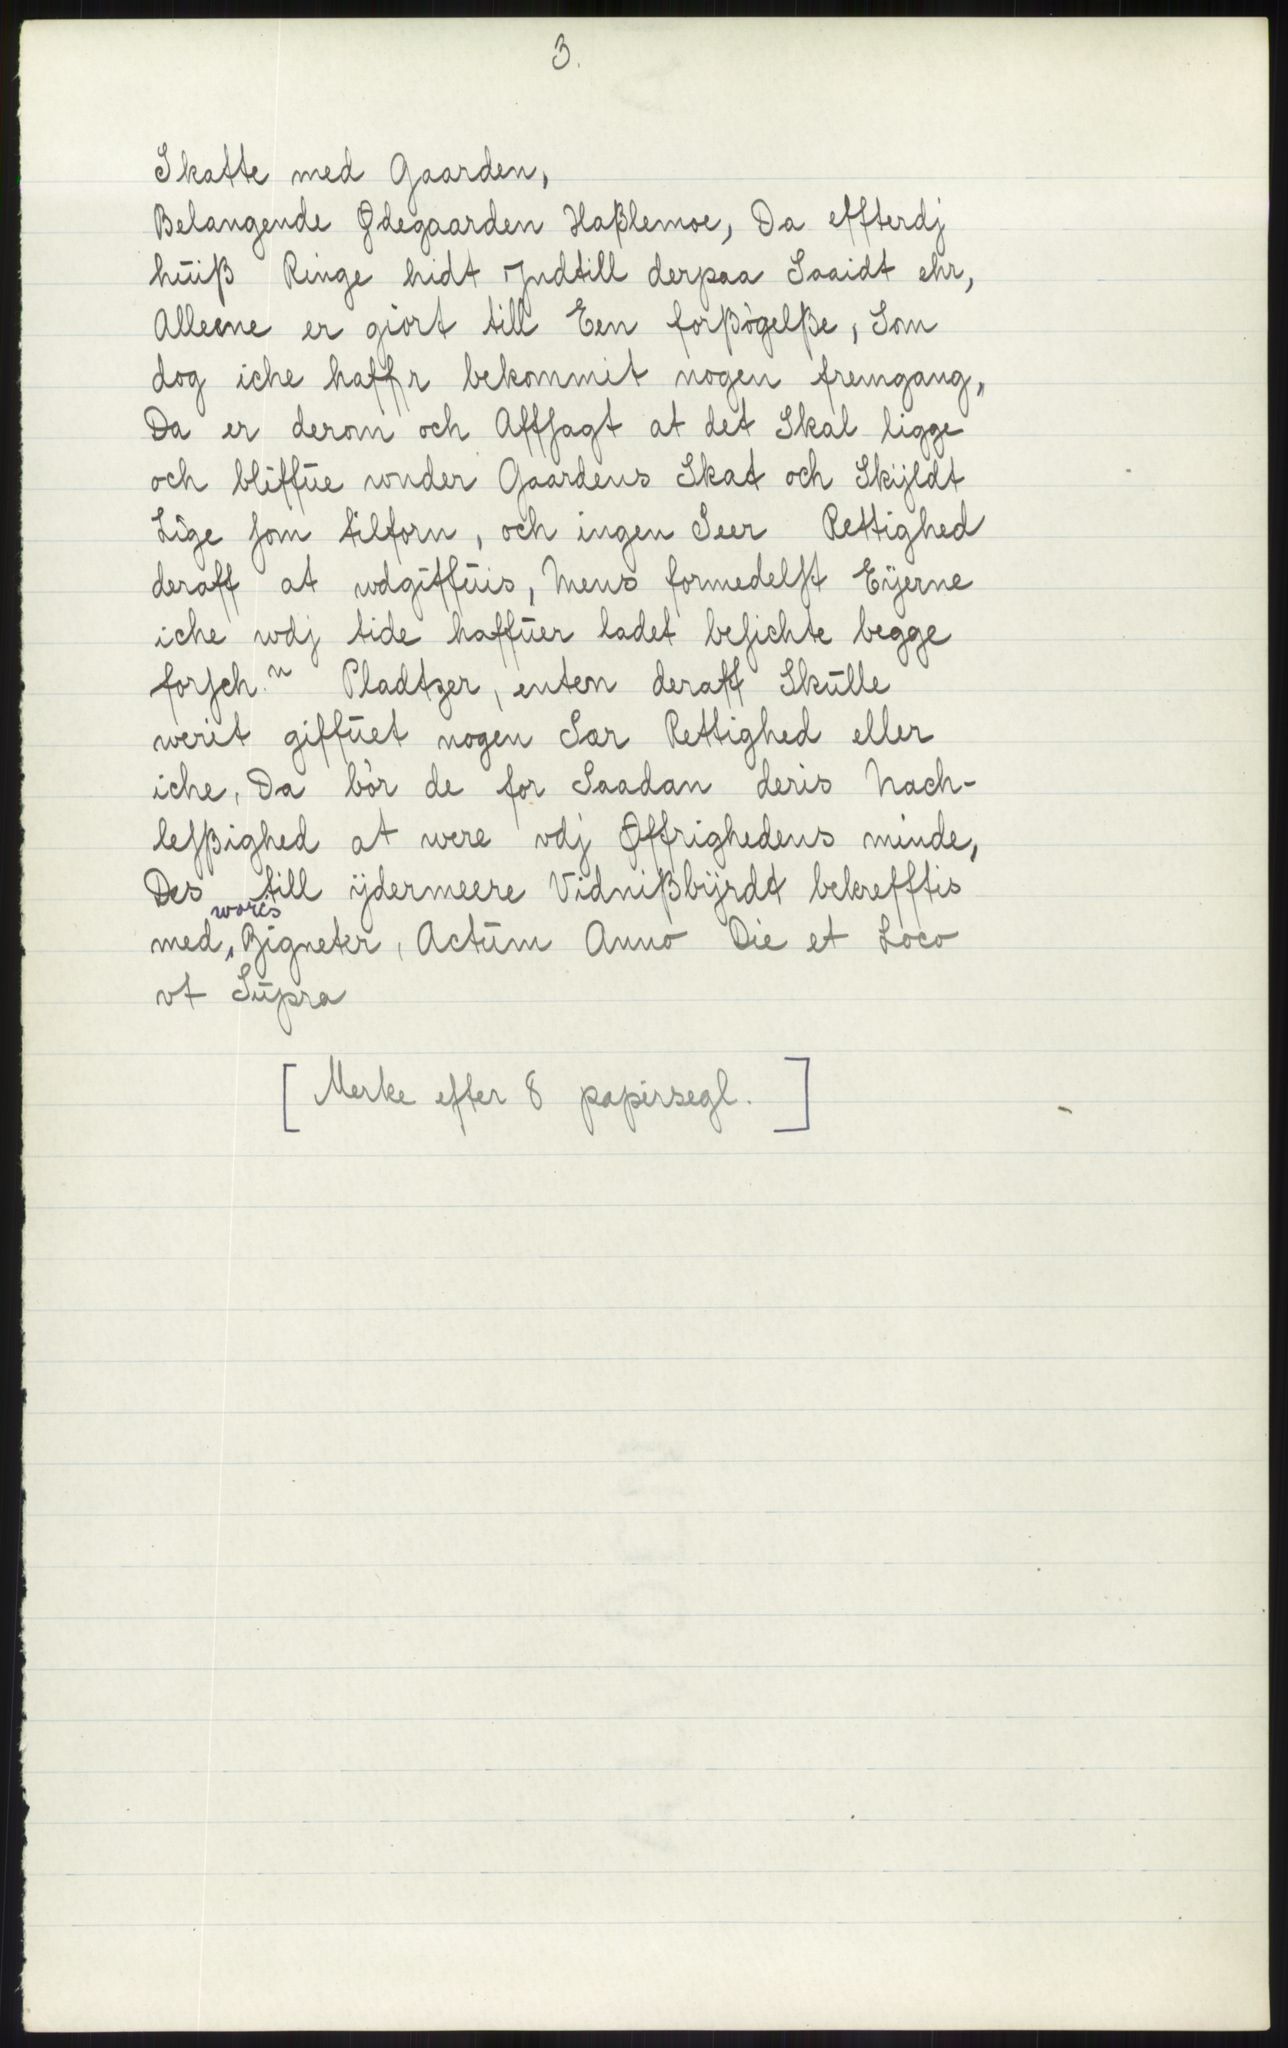 3.
Skatte med Gaarden,
Belangende Ødegaarden Haßlemoe, Da effterdj
huiß Ringe hidt Jndtill derpaa Saaidt ehr,
Alleene er giort till Een forßögelße, Som
dog iche haffr bekommit nogen fremgang,
Da er derom och Affsagt at det Skal ligge
och bliffue wnder Gaardens Skat och Skÿldt
Lige som tilforn, och ingen Seer Rettighed
deraff at wdgiffuis, Mens formedelst Eÿerne
iche wdj tide haffuer ladet besichte begge
forsch.n Pladtzer, enten deraff Skulle
werit giffuet nogen Sær Rettighed eller
iche, Da bör de for Saadan deris Nach-
lesßighed at were vdj Øffrighedens minde,
Des till ÿdermeere Vidnißbÿrdt bekrefftis
med woris Zigneter, Actum Anno Die et Loco
vt Supra
[Merke efter 8 papirsegl.]